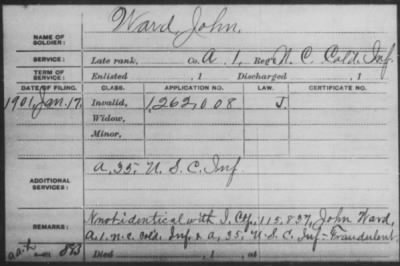 Ward, John.
NAME OF SOLDIER:
SERVICE: Late rank, Co. A. 1, Reg't N. C. Cold. Inf.
TERM OF SERVICE: Enlisted , 1 Discharged , 1
DATE OF FILING. CLASS. APPLICATION NO. LAW. CERTIFICATE NO.
1901 Jan. 17. Invalid, 1,262,008 J.
Widow,
Minor,
A, 35, U. S. C. Inf
ADDITIONAL SERVICES:
REMARKS: identical with I. 115,837, John Ward,
A. 1. N. C. Cold. Inf. & A, 35, U. S. C. Inf - Fraudulent
893 Died , 1 , at